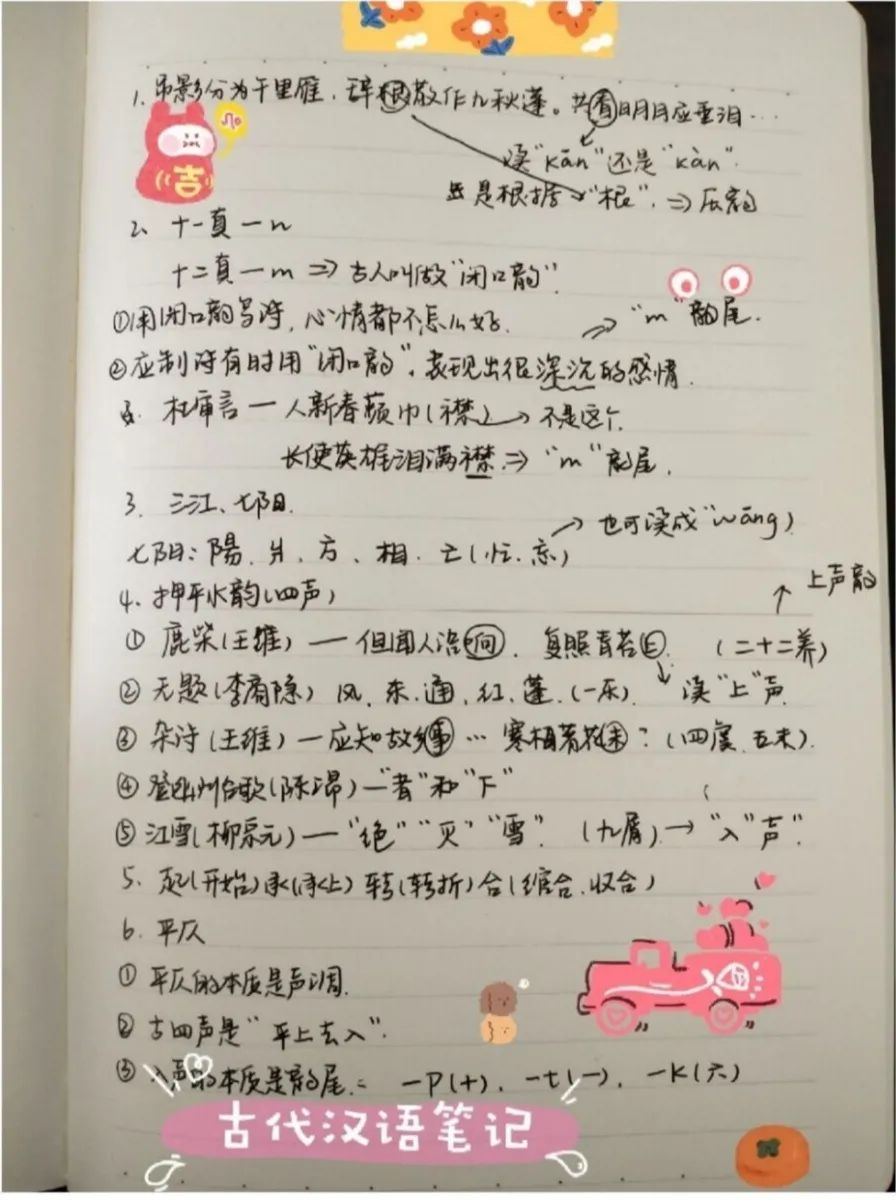 1. 吊影分为千里雁，辞根散作九秋蓬。共看明月应垂泪…
吉
读“kān”还是“kàn”
是根据→“根”. ⇒ 压韵
2、十一真一n
十二真一m ⇒ 古人叫做“闭口韵”
①用闭口韵写诗，心情都不怎么好. → “m”韵尾.
②应制诗有时用“闭口韵”，表现出很深沉的感情.
杜审言一人新春 巾(襟)→不是这个.
长使英雄泪满襟 ⇒ “m”韵尾.
3. 三江、七阳.
七阳: 陽、 、方、相、亡(忙、忘) → 也可读成“wāng)
4、押平水韵(四声)
上声韵
① 鹿柴(王维) — 但闻人语响. 复照青苔上. (二十二养)
② 无题(李商隐) 风、东、通、红、蓬. (一东) 读“上”声
③ 杂诗(王维) — 应知故乡事 … 寒梅著花未? (四寘、五未).
④ 登幽州台歌(陈子昂) — “者”和“下”
⑤ 江雪(柳宗元) — “绝”“灭”“雪”. (九屑) → “入”声”.
5. 起(开始)承(承上) 转(转折) 合(缩合、收合)
6. 平仄
① 平仄的本质是声调.
② 古四声是“平上去入”.
③ 入声的本质是韵尾: -P(十)、-t(一)、-K(六)
古代汉语笔记